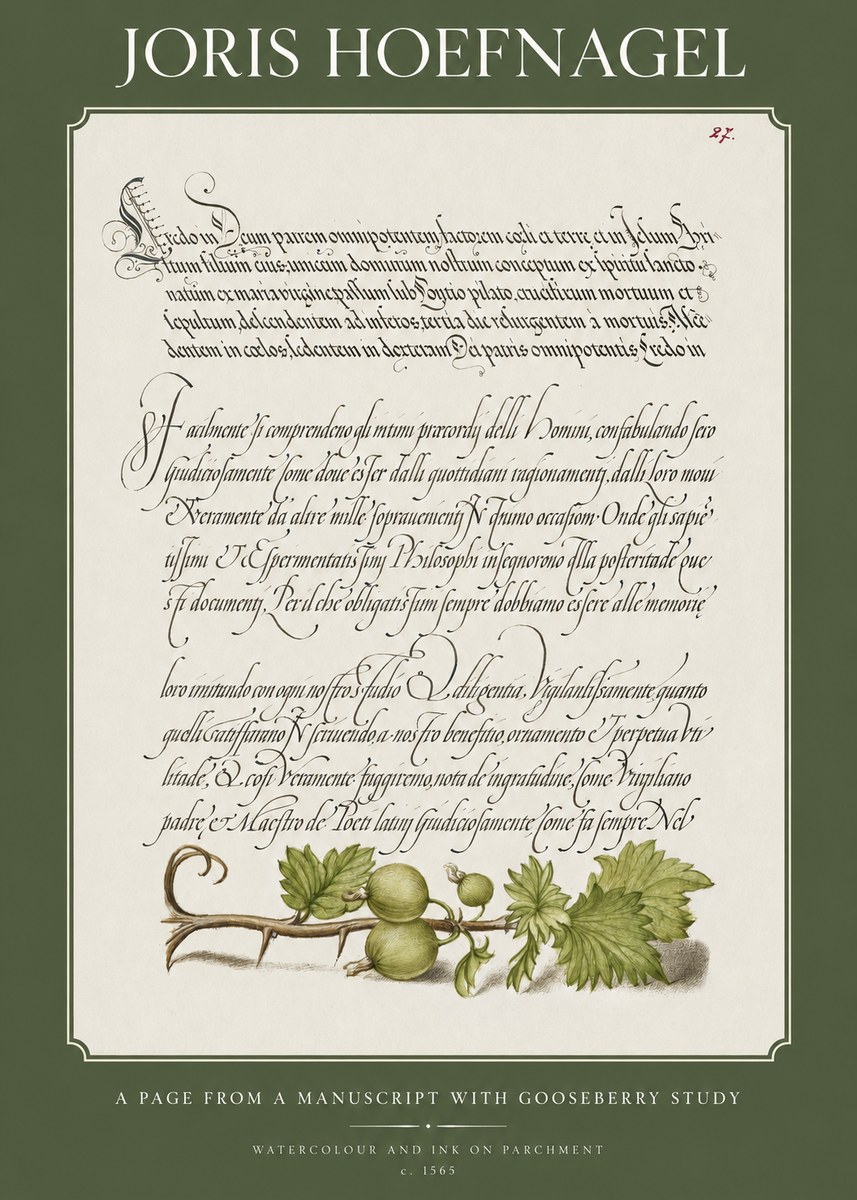 JORIS HOEFNAGEL
27.
Credo in Deum patrem omnipotentem, factorem cœli et terrę, et in Iesum Chri-
stum filium eius, unicum dominum nostrum conceptum ex spiritu sancto
natum ex maria virgine, passum sub Pontio pilato, crucifixum mortuum et
sepultum, descendentem ad inferos, tertia die resurgentem à mortuis,
dentem in cœlos, sedentem in dexteram Dei patris omnipotentis Credo in
Facilmente si comprendeno gli intimi præcordij delli Homini, confabulando sero
Giudiciosamente Come doue esser dalli quottidiani ragionamenti, dalli loro moui
Veramente da altre mille sopravenienti occasioni. Onde gli sapiē
tissimi & Esperimentatissimj Philosophi insegnorono alla posteritade que
sti documentj, Per il che obligatissimi sempre dobbiamo essere alle memorię
loro imitando con ogni nostro studio & diligentia, Vigilantissamente, quanto
quelli satisffarano scriuendo, a nostro benefitio, ornamento & perpetua Vti
litade, & cosi Veramente fuggiremo, nota de ingratudine, Come Virgiliano
padre, & Maestro de Poeti latinj Giudiciosamente, Come fa sempre Nel
A PAGE FROM A MANUSCRIPT WITH GOOSEBERRY STUDY
WATERCOLOUR AND INK ON PARCHMENT
c. 1565